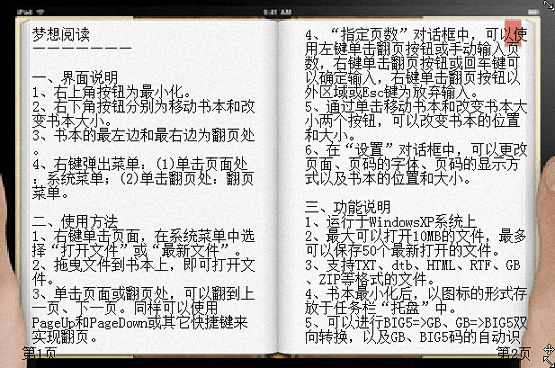 iPad
9:41 AM
梦想阅读
－－－－－－－
一、界面说明
1、右上角按钮为最小化。
2、右下角按钮分别为移动书本和改
变书本大小。
3、书本的最左边和最右边为翻页处
。
4、右键弹出菜单：(1)单击页面处
：系统菜单；(2)单击翻页处：翻页
菜单。
二、使用方法
1、右键单击页面，在系统菜单中选
择“打开文件”或“最新文件”。
2、拖曳文件到书本上，即可打开文
件。
3、单击页面或翻页处，可以翻到上
一页、下一页。同样可以使用
PageUp和PageDown或其它快捷键来
实现翻页。
第1页
4、“指定页数”对话框中，可以使
用左键单击翻页按钮或手动输入页
数，右键单击翻页按钮或回车键可
以确定输入，右键单击翻页按钮以
外区域或Esc键为放弃输入。
5、通过单击移动书本和改变书本大
小两个按钮，可以改变书本的位置
和大小。
6、在“设置”对话框中，可以更改
页面、页码的字体、页码的显示方
式以及书本的位置和大小。
三、功能说明
1、运行于WindowsXP系统上
2、最大可以打开10MB的文件，最多
可以保存50个最新打开的文件。
3、支持TXT、dtb、HTML、RTF、GB
、ZIP等格式的文件。
4、书本最小化后，以图标的形式存
放于任务栏“托盘”中。
5、可以进行BIG5=>GB、GB=>BIG5双
向转换，以及GB、BIG5码的自动识
第2页